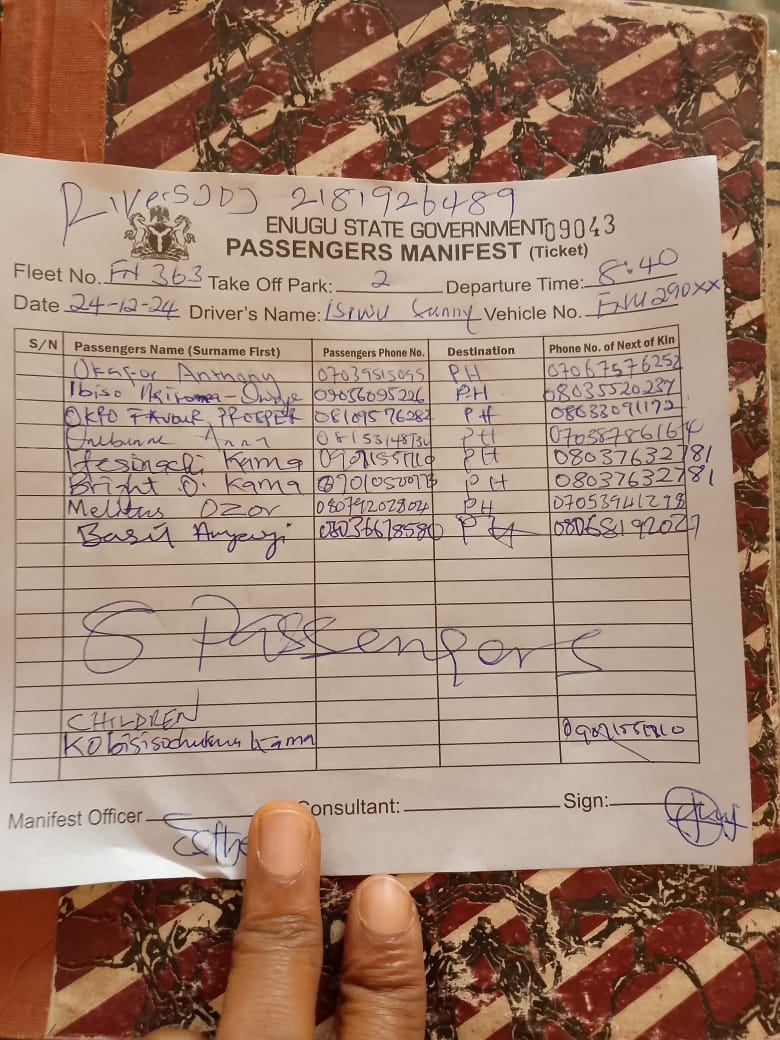 RiversJDJ 2181926489
ENUGU STATE GOVERNMENT 09043
PASSENGERS MANIFEST (Ticket)
Fleet No. FN 363 Take Off Park: 2 Departure Time: 8:40
Date 24-12-24 Driver's Name: Isiwu Sunny Vehicle No. 290XX
S/N Passengers Name (Surname First) Passengers Phone No. Destination Phone No. of Next of Kin
Okafor Anthony 07039515095 PH 07067576252
Ibiso PH 08035520237
OKPO FAVOUR PROSPER 08109576282 PH 08033091172
Anna PH
Ifesinachi Kama PH 08037632781
Bright O. Kama PH 08037632781
Melitus Ozor 08079202804 PH 07053941278
Basil Anyanji 08036678580 PH
8 Passengers
CHILDREN
Kobisisochukwu Kama
Manifest Officer Consultant: Sign: